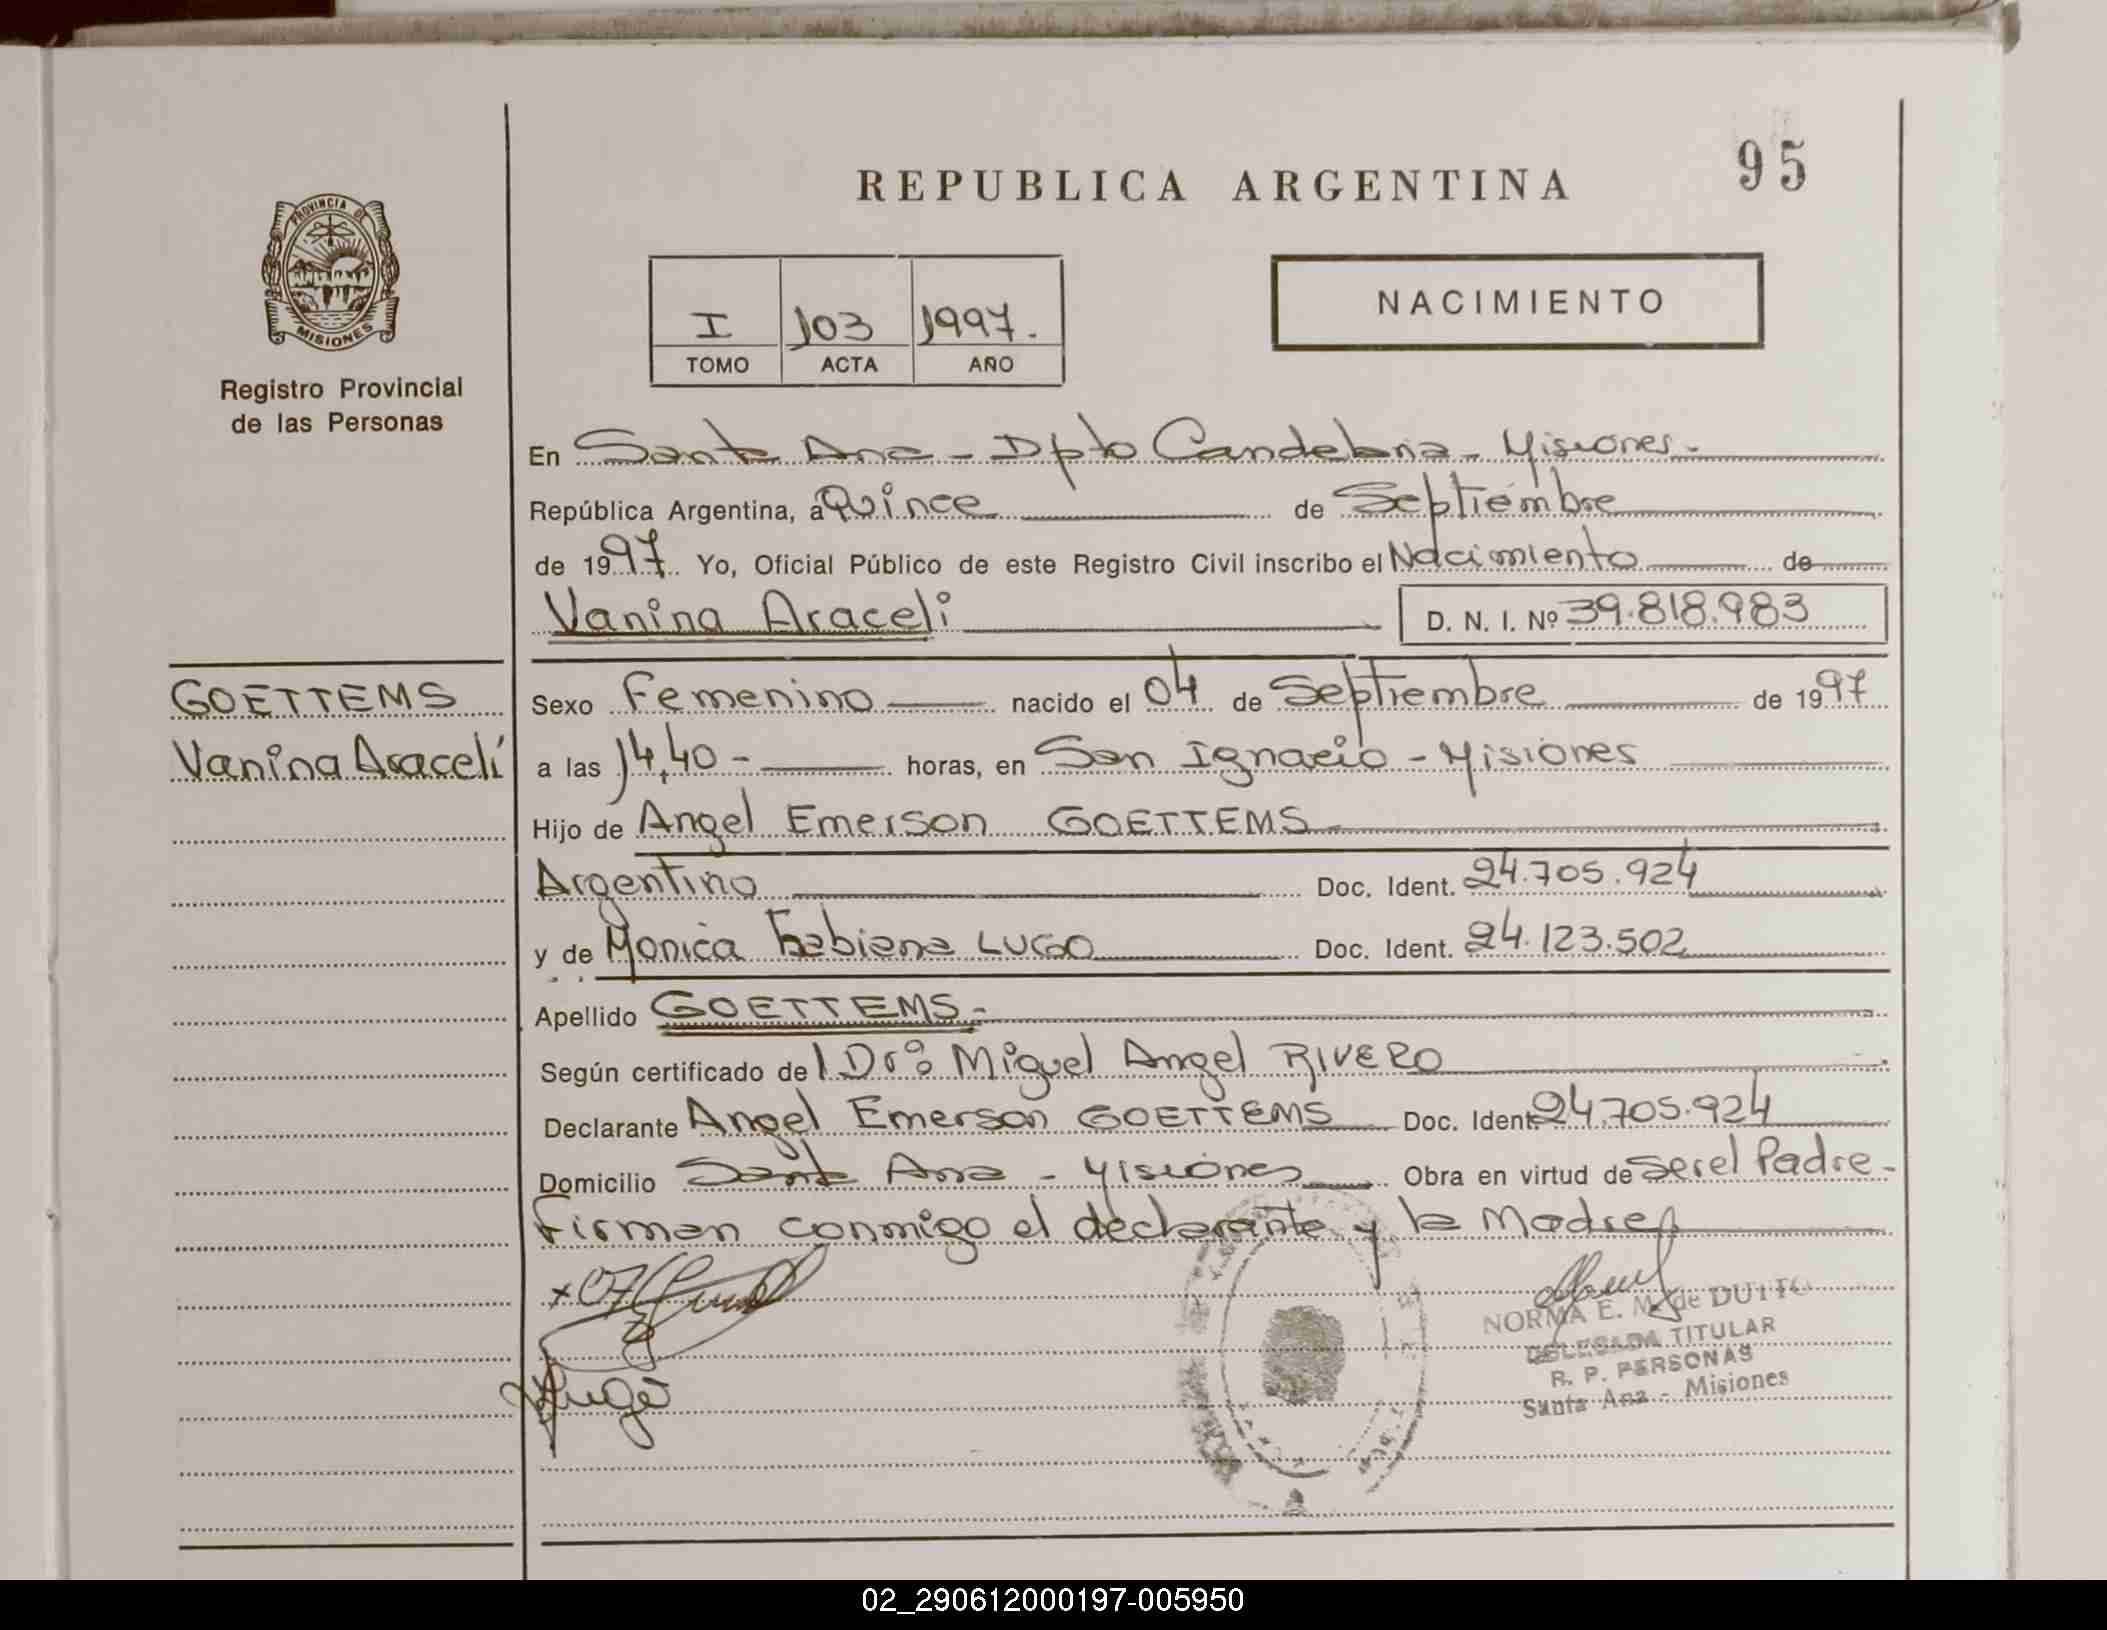 95
REPUBLICA ARGENTINA
PROVINCIA DE
MISIONES
Registro Provincial
de las Personas
I 103 1997.
TOMO ACTA AÑO
NACIMIENTO
En Santa Ana - Dpto Candelaria - Misiones -
República Argentina, a Quince de Septiembre
de 1997 Yo, Oficial Público de este Registro Civil inscribo el Nacimiento de
Vanina Araceli D. N. I. Nº 39.818.983
GOETTEMS
Vanina Aracelí
Sexo Femenino nacido el 04 de Septiembre de 1997
a las 14,40 - horas, en San Ignacio - Misiones
Hijo de Angel Emerson GOETTEMS
Argentino Doc. Ident. 24.705.924
y de Monica Fabiana LUGO Doc. Ident. 24.123.502
Apellido GOETTEMS -
Según certificado del Dr: Miguel Angel RIVERO
Declarante Angel Emerson GOETTEMS Doc. Ident. 24.705.924
Domicilio Santa Ana - Misiones Obra en virtud de Ser el Padre -
Firman conmigo el declarante y la Madre
NORMA E. M. de
DELEGADA TITULAR
R. P. PERSONAS
Santa Ana - Misiones
02_290612000197-005950